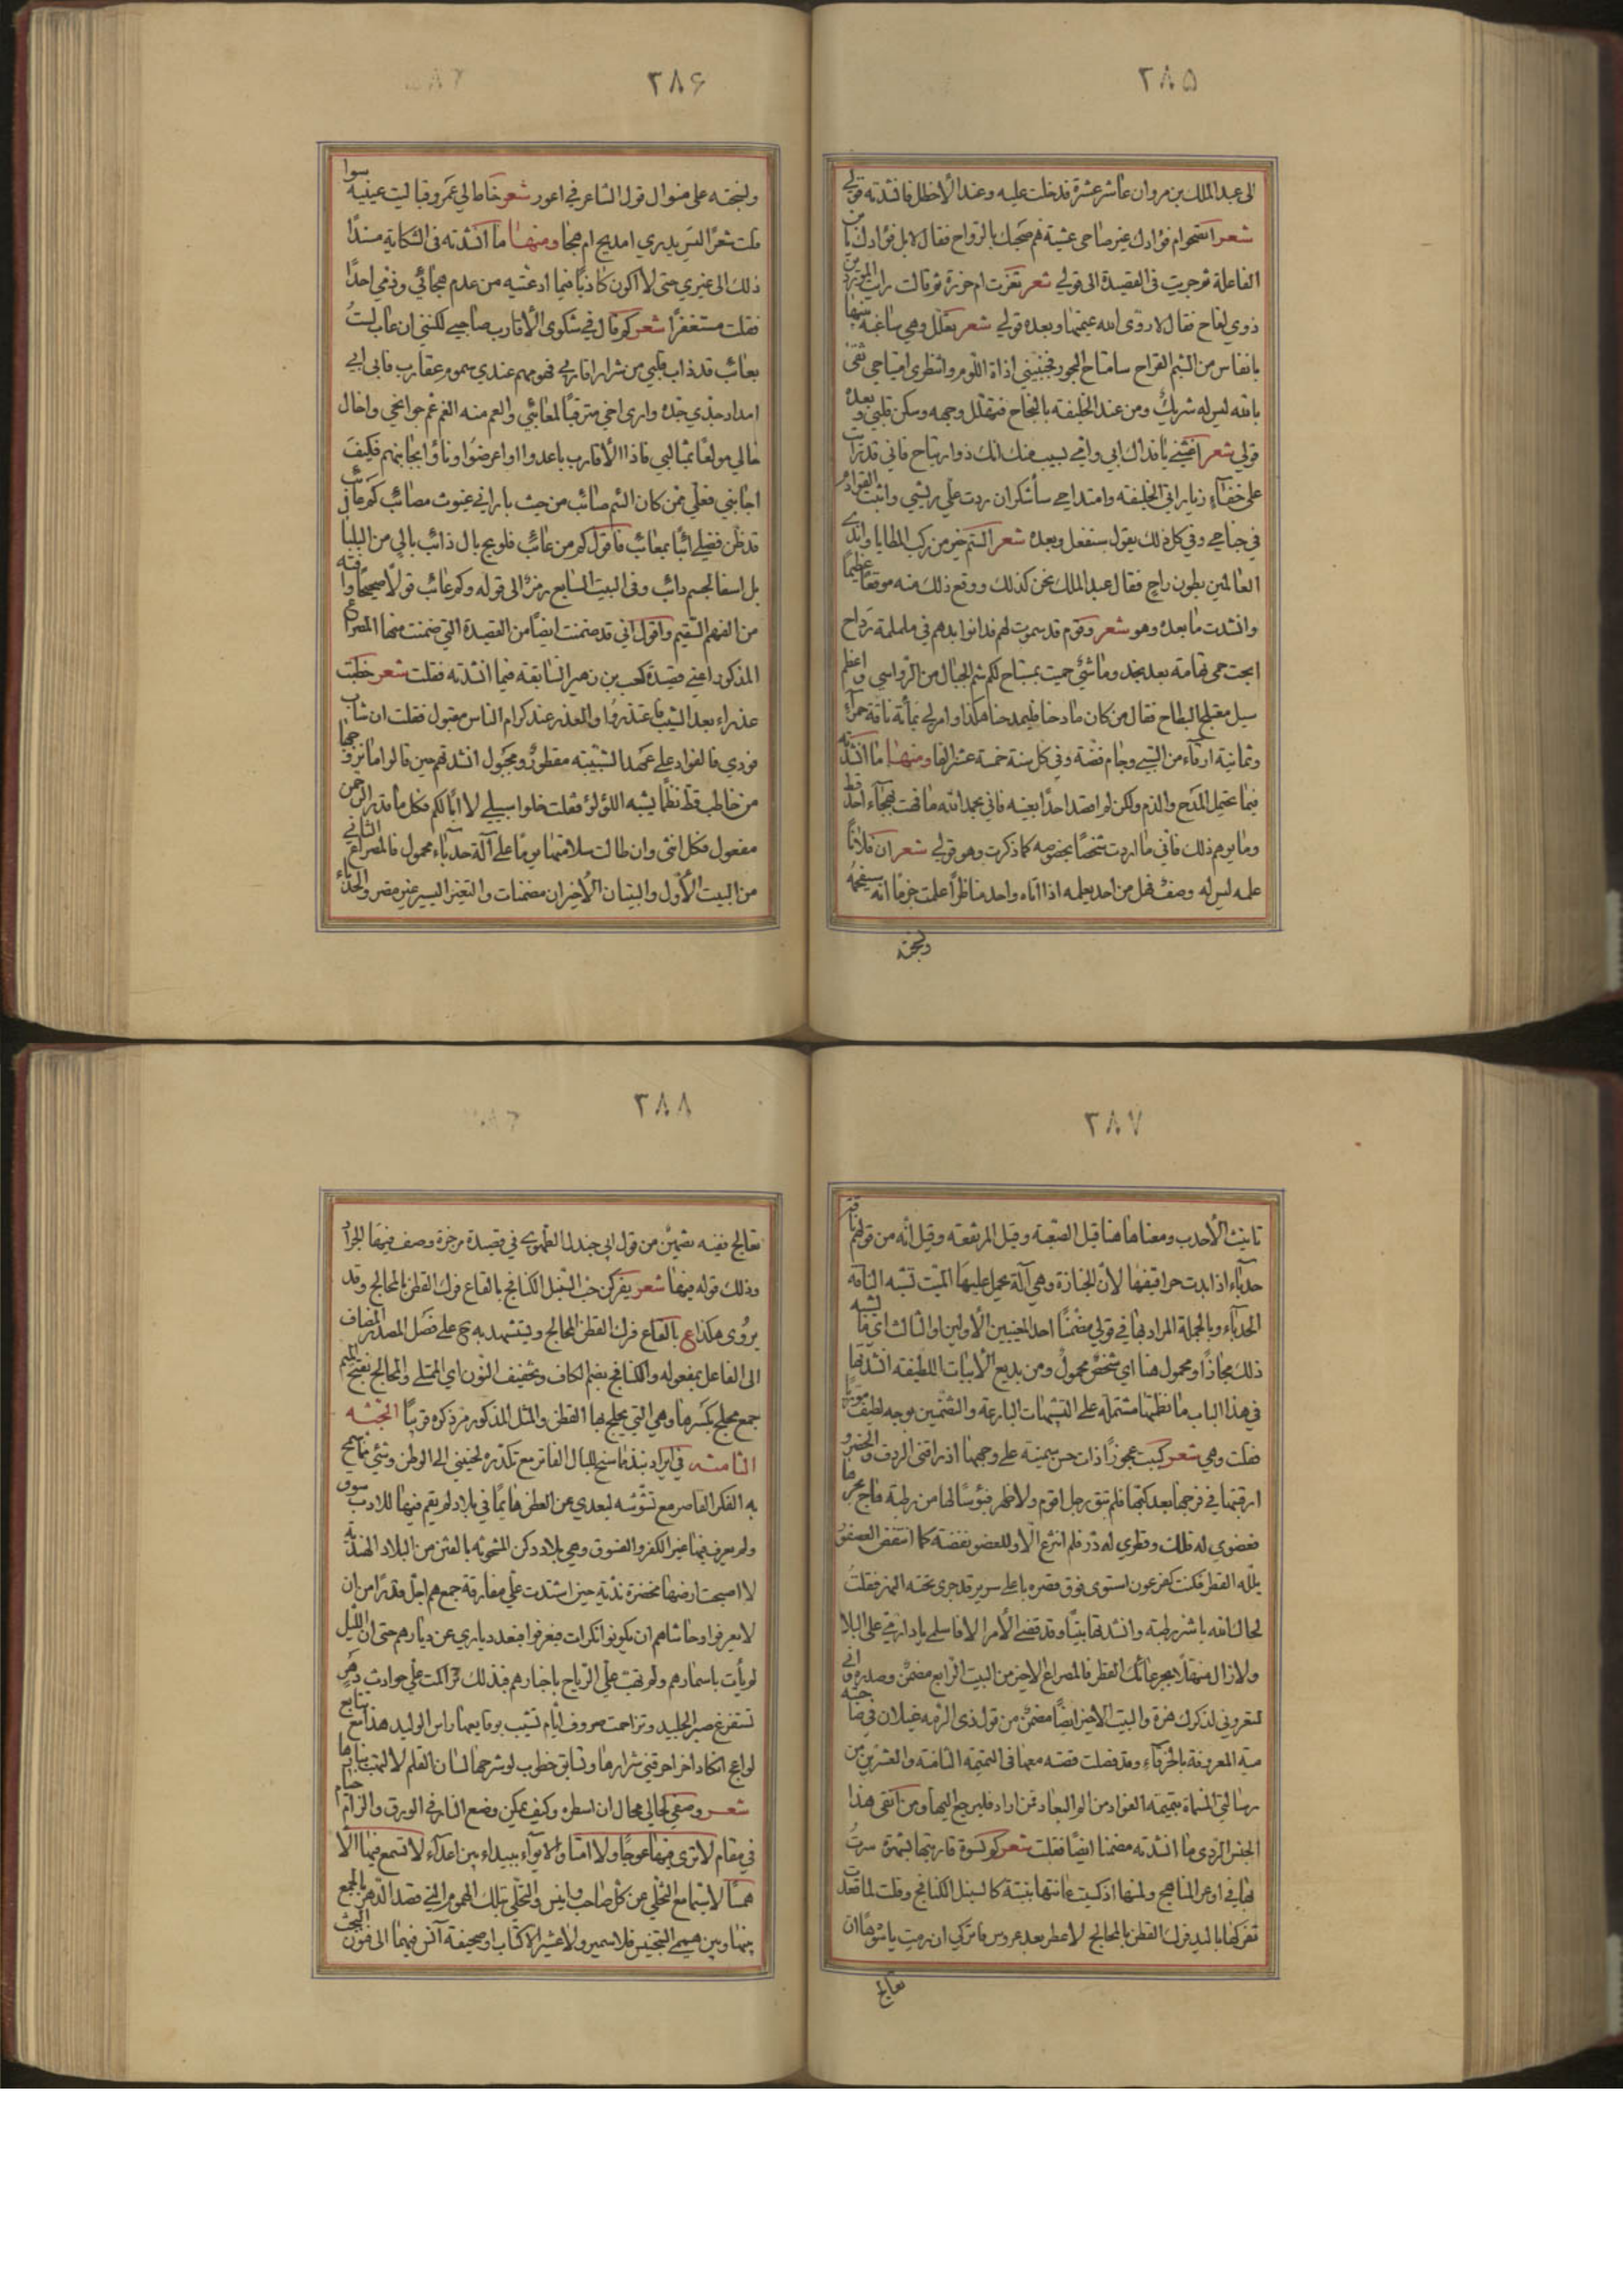 ٢٨۵
لى عبد الملك بن مروان عاشر عشرة قد خلت عليه وعنده الأخطل فانشدته قولي
شعر اتصحو ام فؤادك غير صاحى عشية هم صحبك بالرواح فقال لا بل فؤادك يا بن
الفاعلة ثم جريت فى القصيدة الى قولي شعر تعزت ام حزرة ثم قالت رايت الموردين
ذوي لقاح فقال لا روّى الله عيمتها وبعده قولي شعر تعلل وهي ساغبة بنيها
بانفاس من الشبم القراح سامتاح البحور فجنبيني اذاة اللوم وانتظرى امتياحي ثقى
بالله ليس له شريك ومن عند الخليفة بالنجاح فتهلل وجهه وسكن قلبي وبعده
قولي شعر اغثني يا فداك ابي وامي بسيب منك انك ذو ارتياح فاني قد رايت
علي حقاً زيارتي الخليفة وامتداحي سأشكر ان رددت علي ريشي واثبت القوادم
في جناحي وفي كل ذلك يقول سنفعل وبعده شعر الستم خير من ركب المطايا واندى
العالمين بطون راحٍ فقال عبد الملك نحن كذلك ووقع ذلك منه موقعا عظيمًا
وانشدت ما بعده وهو شعر وقوم قد سموت لهم فدانوا بدهم في ململمة رداح
ابحت حمى تهامة بعد نجد وما شئي حميت بمستباح لكم شم الجبال من الرواسي واعظم
سيل معتلج البطاح فقال من كان مادحنا فليمدحنا هكذا وامر لي بمائة ناقة حمراء
وثمانية ارقاء من السبي وجام فضة وفي كل سنة خمسة عشر الفا ومنها ما انشدته
فيما يحتمل المدح والذم ولكن لم اقصد احدًا بعينه فاني بحمد الله ما فهت بهجاء احد قط
وما يوهم ذلك فاني ما اردت شخصًا بخصوصه كما ذكرت وهو قولي شعر ان فلاناً
علمه ليس له وصف فهل من احد يعلمه اذا اتاه واحد مناظراً علمت جزمًا انه سيفحمه
ولنجته
٢٨۶
ولنجته على منوال قول الشاعر في اعور شعر خاط لي عمرو قبا ليت عينيه سوا
قلت شعرًا ليس يدري امديح ام هجا ومنها ما انشدته فى الشكاية مسندًا
ذلك الى غيري حتى لا اكون كاذبًا فيما ادعيته من عدم هجائي وذمي احدًا
فقلت مستغفرًا شعر كم قال في شكوى الأقارب صاحبي لكنني ان عاب لستُ
بعائب قد ذاب قلبي من شرار اقاربي فهومهم عندي سموم عقارب فابى ابي
امداد جدي جده وارى اخي مترقبًا لمعائبي والعم منه الغم غم جوانحي واخال
خالي مولعًا بمثالبي فاذا الأقارب باعدوا او اعرضوا وناؤا بجانبهم فكيف
اجانبي فعلي ممن كان الشم صائب من حيث باراني غيوث مصائب كم عائب
قد ظن فضلي اثبا بمعائب فاقول كم من عائب فلويح بال ذائب بالي من البلبا
بل اسفا لجسم دائب وفى البيت السابع رمز الى قوله وكم عائب قولًا صحيحًا وآفته
من الفهم السقيم واقول اني قد ضمنت ايضًا من القصيدة التي ضمنت منها المصراع
المذكور اعني قصيدة كعب بن زهير السابقة فيما انشدته فقلت شعر خطبت
عذراء بعد الشيب فاعتذروا والعذر عند كرام الناس مقبول فقلت ان شاب
فودي فالفواد على عهد الشبيبة مفطور ومجبول انشدتهم حين قالوا ما نزوجها
من خاطب قط نظمًا يشبه اللؤلؤ فقلت خلوا سبيلي لا ابًا لكم فكل ما قدر الرحمن
مفعول فكل انثى وان طالت سلامتها يومًا على آلة حدباء محمول فالمصراع الثاني
من البيت الأول والبيتان الأخيران مضمنات والتغير اليسير غير مضر والحدباء
٢٨٧
تانيث الأحدب ومعناها هنا قيل الصعبة وقيل المرتفعة وقيل انه من قولهم ناقة
حدباء اذا بدت حراقفها لأن الجنازة وهي آلة يحمل عليها الميت تشبه الناقة
الحدباء وبالجملة المراد بها في قولي مضمنًا احد المعنيين الأولين او الثالث اي ما يشبه
ذلك مجازًا ومحمول هنا اي شخص محمول ومن بديع الأبيات اللطيفة انشدتها
في هذا الباب ما نظمتها مشتملة على التشبيهات البارعة والتضمين بوجه لطيف
فقلت وهي شعر ركبت عجوزًا ذات حسن سمينة على وجهها اذ راقني الردف والخصر و
ارقيتها في فرجها بعد كبتها فلم تبق رجل اقوم ولا ظهر فبؤسًا لها من رطبة فاح بحرها
فعضوي له فلك وقطري له در فلم انتزع الّا وللعضو نفضة كما انتفض العصفور
بلله القطر فكنت كفرعون استوى فوق قصره باعلى سرير قد جرى تحته النهر فقلتُ
لحاك الله يا شر رطبة وانشدتها بيتًا وقد قضي الأمر الا فاسلمي يا دار مي على البلا
ولا زال منهلًا بجرعائك القطر فالمصراع الاخير من البيت الرابع مضمن وصدره واني
لتعروني لذكراك هزة والبيت الاخير ايضًا مضمن من قول ذي الرمة غيلان في صاحبته
مية المعروفة بالخرقاء وقد فصلت قصته معها فى التميمة الثامنة والعشرين من
رسالتي المسماة بتميمة الفواد من الم البعاد فمن اراد فليرجع اليها ومن اتقى هذا
الجنس الردى ما انشدته مضمنا ايضًا فقلت شعر كم كسوة قاربتها بشهوة سرتُ
بها في اوعر المناهج ولمتها اذ كسيت عانتها بنبتة كالسنبل الكنافج وقلت لما قعدت
تفركها باليد فرك القطن بالمحالج لا عطر بعد عروس فاتركي ان رمت يا شوهاً ان
تعالج
٢٨٨
تعالج ففيه تضمين من قول ابي جندل الطهوي في قصيدة مرجزة وصف فيها الجراد
وذلك قوله فيها شعر يفركن حب السنبل الكنافج بالقاع فرك القطن بالمحالج وقد
يروى هكذا ع بالقاع فرك القطن المحالج ويستشهد به ح على فصل المصدر المضاف
الى الفاعل بمفعوله والكنافج بضم الكاف وتخفيف النون اي الممتلي والمحالج بفتح الميم
جمع محلج بكسرها وهي التي يحلج بها القطن والمثل المذكور مر ذكره قريبًا الخبثة
الثامنة في ايراد نبذ ما سنح للبال الفاتر مع تكدره لحنيني الى الوطن وشئي مما سمح
به الفكر القاصر مع تشوشه لبعدي عن العطن هايمًا في بلاد لم يقم فيها للادب سوق
ولم يعرف فيها غير الكفر والفسوق وهي بلاد دكن المشحونة بالفتن من البلاد الهندية
لا اصبحت ارضها مخضرة ندية حين اشتدت علي مفارقة جمع هم اجل قدرًا من ان
لا يعرفوا وحاشاهم ان يكونوا نكرات فيعرفوا فبعد دياري عن ديارهم حتى ان الليل
لم يأت باسمارهم ولم تهب علي الرياح باخبارهم فبذلك تراكمت علي حوادث دهر
تستفرغ صبر الجليد وتزاحمت صروف ايام تشيب بوقايعها راس الوليد هذا مع تتابع
لواعج انكاد اخر احرقني شرارها وتسابق خطوب لو شرحها لسان القلم لالتهب بنارها
شعر وصفي لحالي محال ان اسطره وكيف يمكن وضع النار في الورق والزام خيام
في مقام لا ترى فيها عوجًا ولا امتا والايواء ببيداء بين اعداء لا تسمع فيها الّا
همسًا لا سيما مع التخلي عن كل صاحب وانيس والتحلي بتلك الهموم التي قصد الدهر بالجمع
بينها وبين هميمي التجنيس فلا سمير ولا عشير الا كتاب او صحيفة آنس فيهما الى فنون البحث